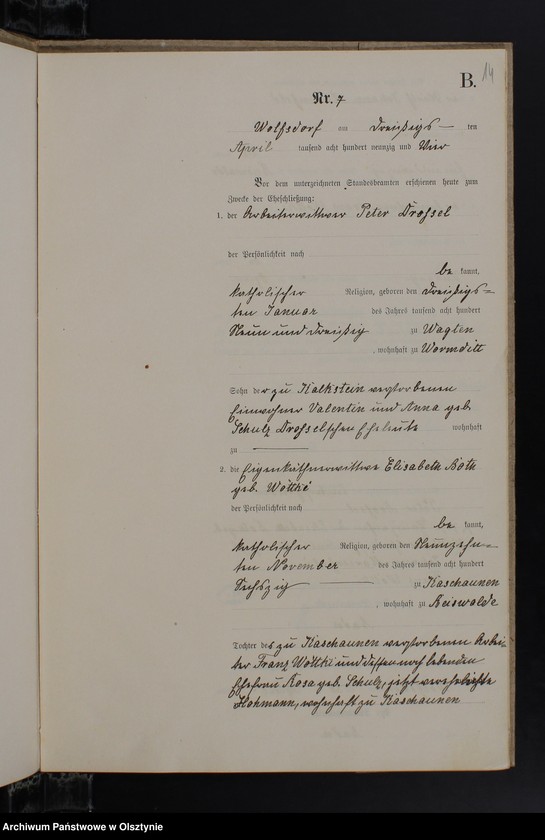 B. 14
Nr. 7
Wolfsdorf am Dreißigs— ten
April tausend acht hundert neunzig und Vier
Vor dem unterzeichneten Standesbeamten erschienen heute zum
Zwecke der Eheschließung:
1. der Arbeiterwittwer Peter Drossel
der Persönlichkeit nach
be kannt,
katholischer Religion, geboren den Dreißigs=
ten Januar des Jahres tausend acht hundert
Neun und dreißig zu Waglen
, wohnhaft zu Wormditt
Sohn der zu Kalkstein verstorbenen
Einwohner Valentin und Anna geb.
Schulz Drosselschen Eheleute wohnhaft
zu
2. die Eigenkäthnerwittwe Elisabeth Both
geb. Wottki
der Persönlichkeit nach
be kannt,
katholischer Religion, geboren den Neunzehn=
ten November des Jahres tausend acht hundert
Sechszig zu Kaschaunen
, wohnhaft zu Reiswalde
Tochter des zu Kaschaunen verstorbenen Arbei=
ter Franz Wottki und dessen noch lebenden
Ehefrau Rosa geb. Schulz, jetzt verehelichte
Hohmann, wohnhaft zu Kaschaunen
Archiwum Państwowe w Olsztynie